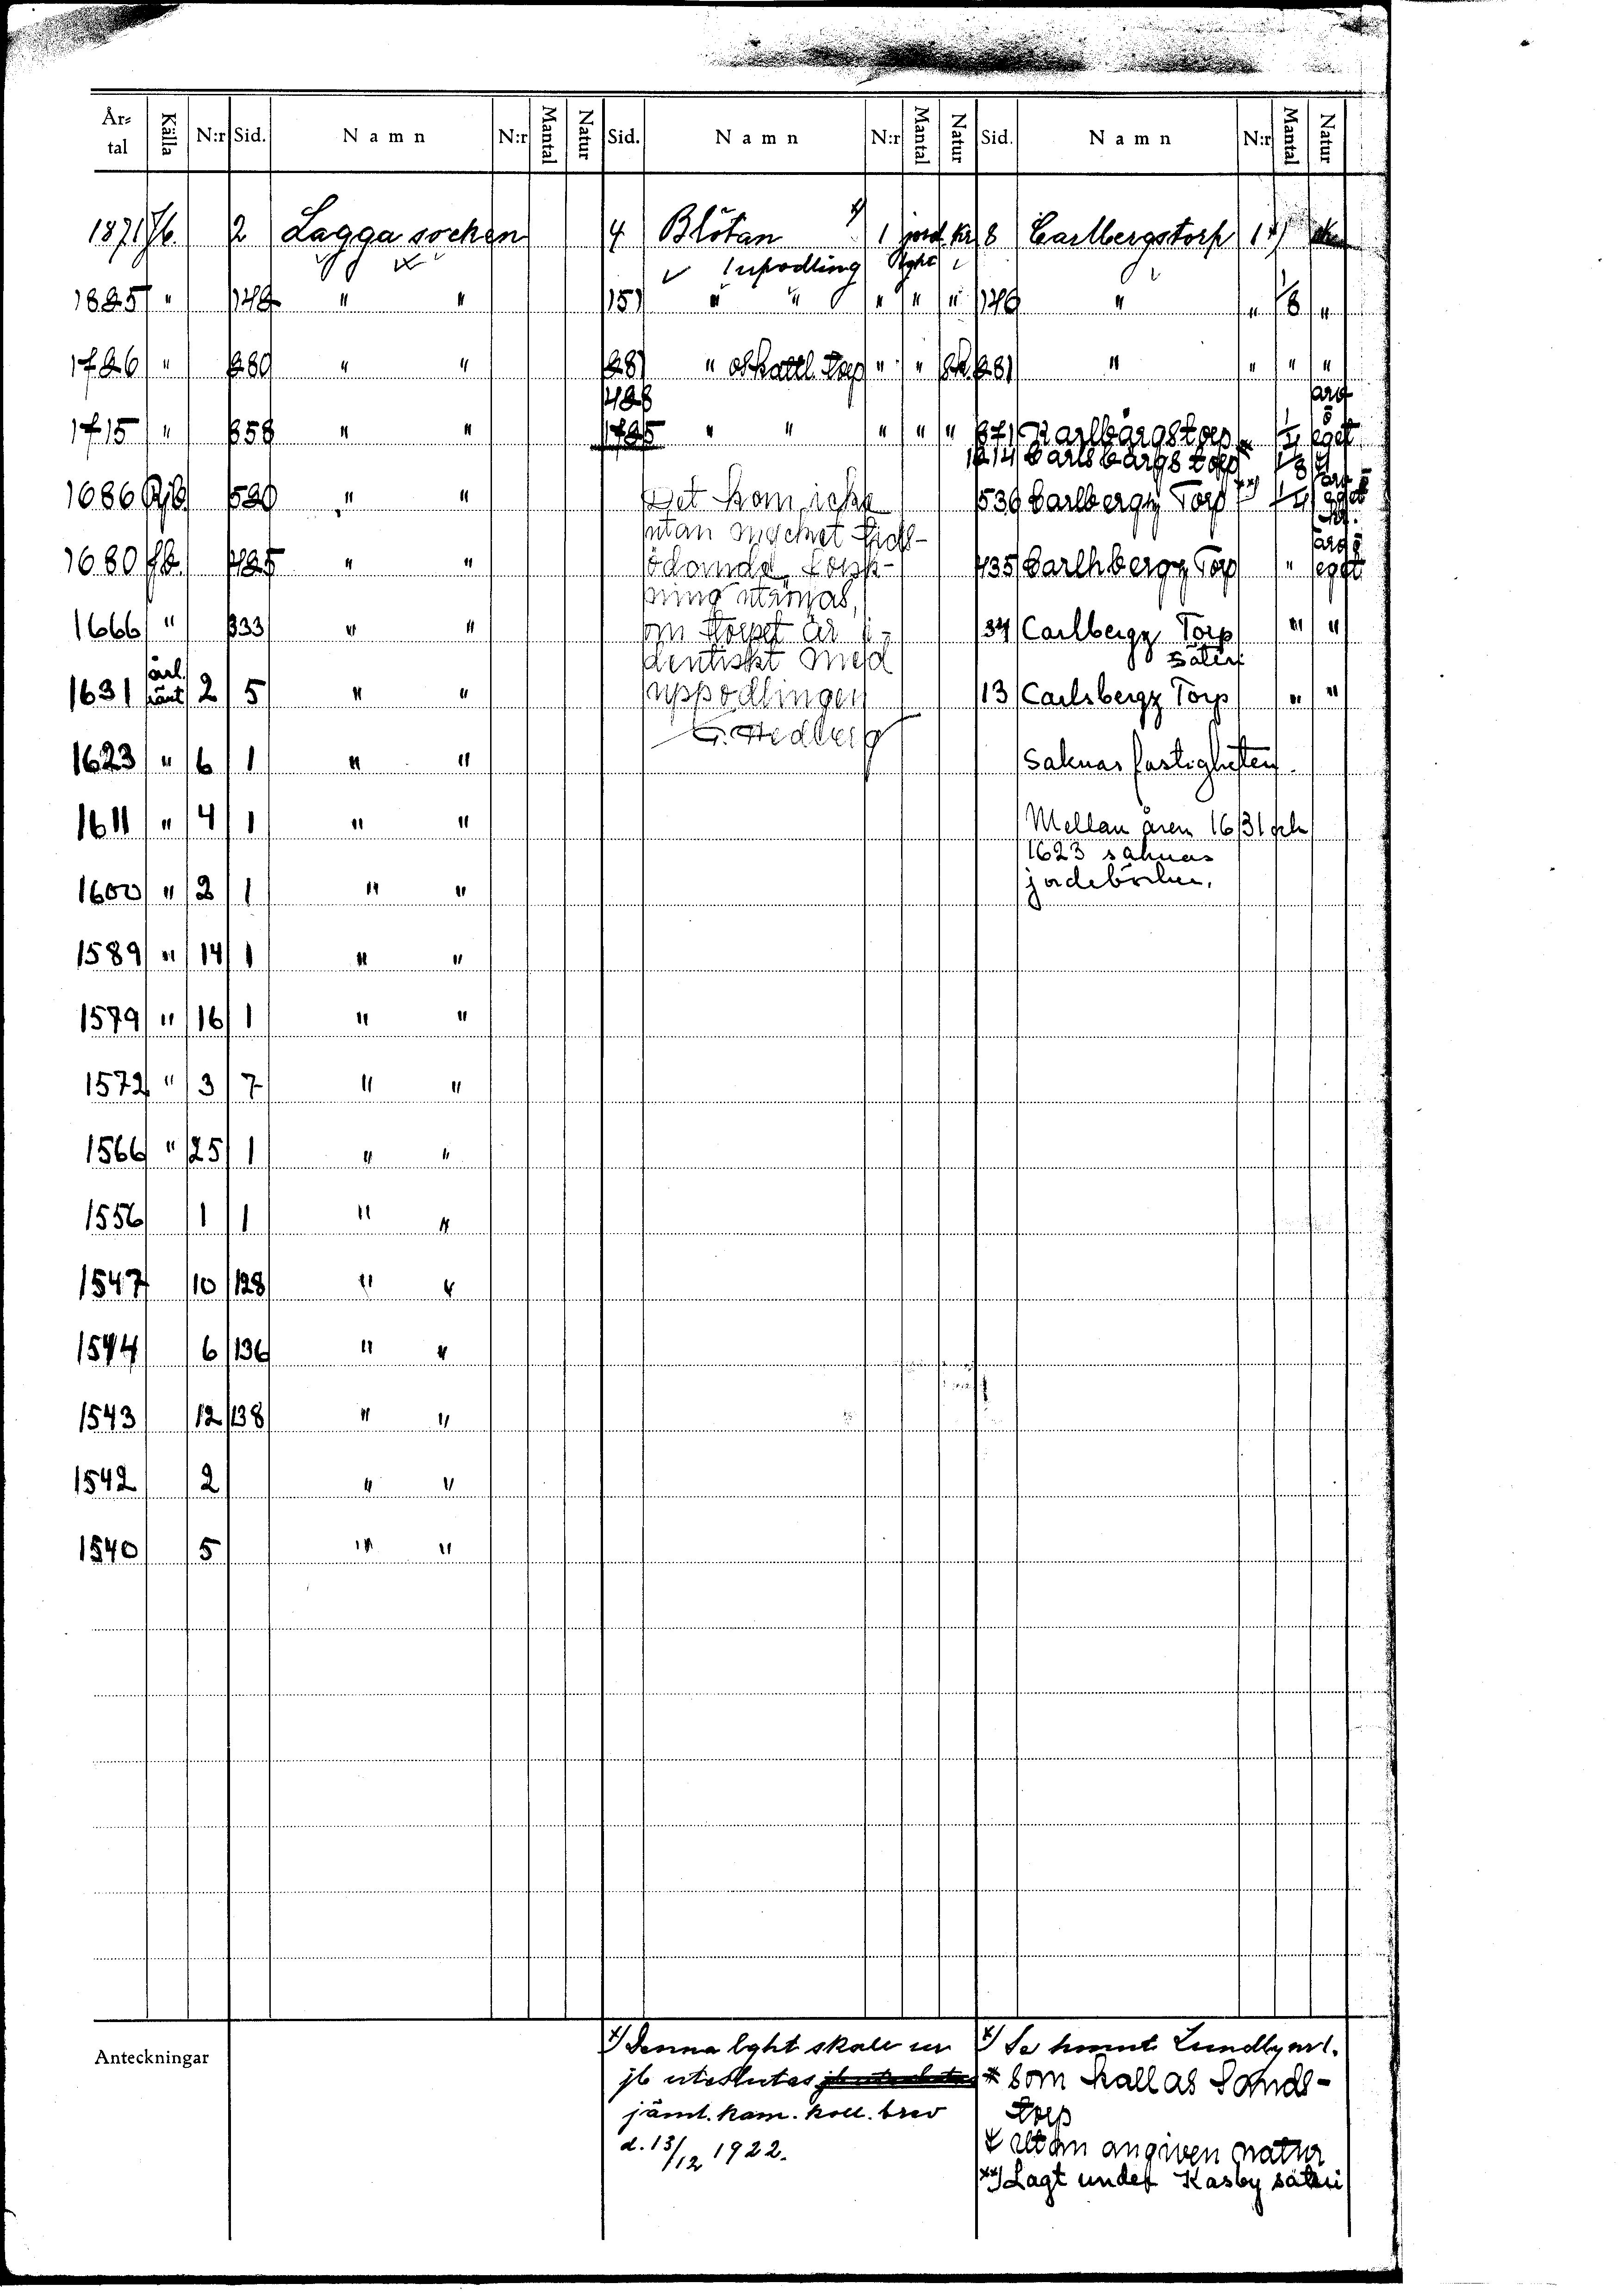 År-tal Källa N:r Sid. Namn N:r Mantal Natur Sid. Namn N:r Mantal Natur Sid. Namn N:r Mantal Natur
1871 Jb. 2 Lagga socken 4 Blötan x) 1 jord Kr 8 Carlbergstorp 1 x)
uppodling lght
1825 " 148 " " 151 " " " " " 146 " " 1/8 "
1726 " 280 " " 281 " oskattl. torp " " Sk. 281 " " " "
1715 " 358 " " 1725 " " " " " 371 Karlbärgstorp * 1/4 eget
1214 Carlsbärgstorp 1/8
1686 Rjb. 520 " " Det kom icke 536 Carlbergz Torp xx) 1/4 eget
utan mycket tids-
1680 Jb. 425 " " ödande forsk- 435 Carlhbergz Torp " eget
ning utrönas,
1666 " 333 " " om torpet är i- 34 Carlbergz Torp " "
dentiskt med säteri
1631 ärl. ränt 2 5 " " uppodlingen 13 Carlsbergz Torp " "
G. Hedberg
1623 " 6 1 " " Saknas fastigheten.
1611 " 4 1 " " Mellan åren 1631 och
1623 saknas
1600 " 2 1 " " jordeböcker.
1589 " 14 1 " "
1579 " 16 1 " "
1572 " 3 7 " "
1566 " 25 1 " "
1556 1 1 " "
1547 10 128 " "
1544 6 136 " "
1543 12 138 " "
1542 2 " "
1540 5 " "
Anteckningar
x) Denna lght skall ur
jb uteslutas
jäml. kam. koll. brev
d. 13/12 1922.
x) Se homt. Lundby nr 1.
* som kallas Sands-
torp
utan angiven natur
xx) Lagt under Kasby säteri